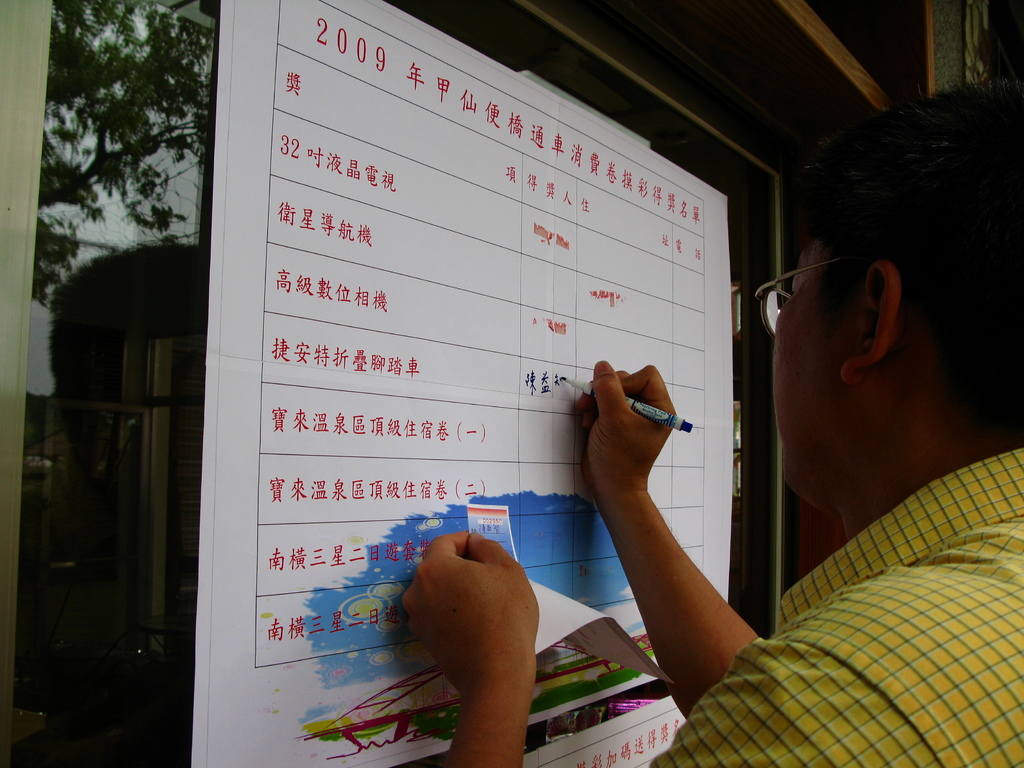 2009 年甲仙便橋通車消費卷摸彩得獎名單
獎 項 得獎人 住 址 電 話
32 吋液晶電視
衛星導航機
高級數位相機
捷安特折疊腳踏車 陳益
寶來溫泉區頂級住宿卷(一)
寶來溫泉區頂級住宿卷(二)
南橫三星二日遊套
南橫三星二日遊
摸彩加碼送得獎名